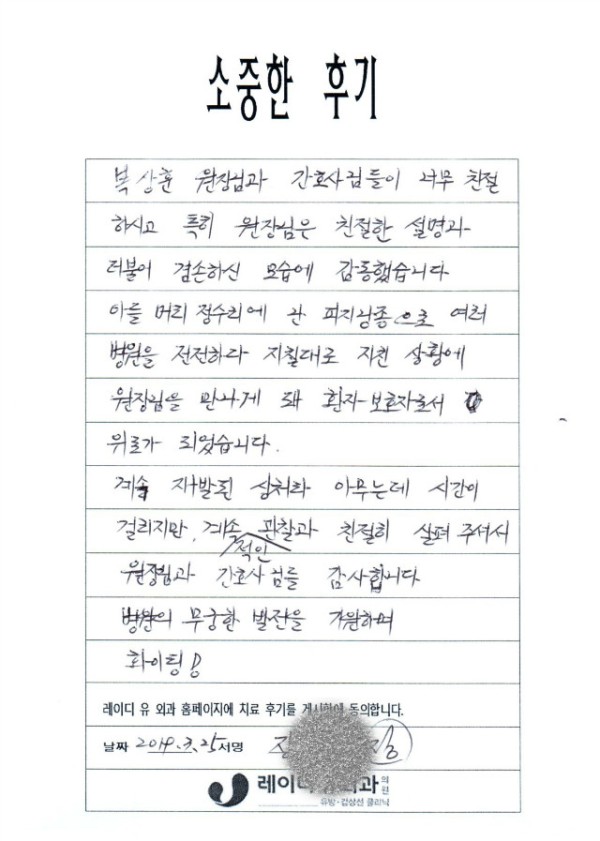 소중한 후기
복상훈 원장님과 간호사님들이 너무 친절
하시고 특히 원장님은 친절한 설명과
더불어 겸손하신 모습에 감동했습니다
아들 머리 정수리에 난 피지낭종으로 여러
병원을 전전하다 지칠대로 지친 상황에
원장님을 만나게 돼 환자보호자로서
위로가 되었습니다.
계속 재발된 상처라 아무는데 시간이
걸리지만, 계속적인 관찰과 친절히 살펴 주셔서
원장님과 간호사님들 감사합니다
병원의 무궁한 발전을 기원하며
화이팅!
레이디 유 외과 홈페이지에 치료 후기를 게시함에 동의합니다.
날짜 2019.3.25 서명
레이디 외과 의원
유방·갑상선 클리닉